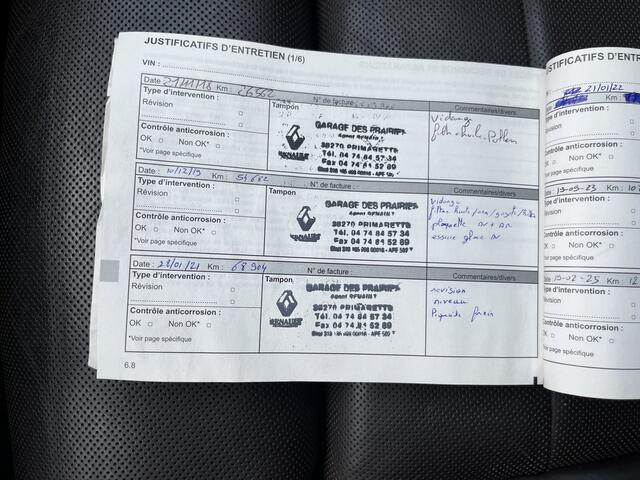 JUSTIFICATIFS D'ENTRETIEN (1/6)
VIN :
Date : 21/11/18 Km : 26562 N° de facture :
Type d'intervention : Tampon Commentaires/divers
Révision
Contrôle anticorrosion :
OK Non OK*
*Voir page spécifique
GARAGE DES PRAIRIES
Agent RENAULT
38270 PRIMARETTE
Tél. 04 74 84 57 34
Fax 04 74 84 52 89
RENAULT
Vidange
Date : 10/12/19 Km : 54682 N° de facture :
Type d'intervention : Tampon Commentaires/divers
Révision
Contrôle anticorrosion :
OK Non OK*
*Voir page spécifique
GARAGE DES PRAIRIES
Agent RENAULT
38270 PRIMARETTE
Tél. 04 74 84 57 34
Fax 04 74 84 52 89
RENAULT
vidange
plaquette AV + AR
essuie glace AV
Date : 28/01/21 Km : 68904 N° de facture :
Type d'intervention : Tampon Commentaires/divers
Révision
Contrôle anticorrosion :
OK Non OK*
*Voir page spécifique
GARAGE DES PRAIRIES
Agent RENAULT
38270 PRIMARETTE
Tél. 04 74 84 57 34
Fax 04 74 84 52 89
RENAULT
revision
niveau
frein
6.8
STIFICATIFS D'ENTR
21/01/22
Km :
d'intervention :
Révision
Contrôle anticorrosion :
OK Non OK*
*Voir page spécifique
19-09-23 Km : 10
Type d'intervention :
Révision
Contrôle anticorrosion :
OK Non OK*
*Voir page spécifique
-02-25 Km : 12
Type d'intervention :
Révision
Contrôle anticorrosion :
OK Non OK*
*Voir page spécifique